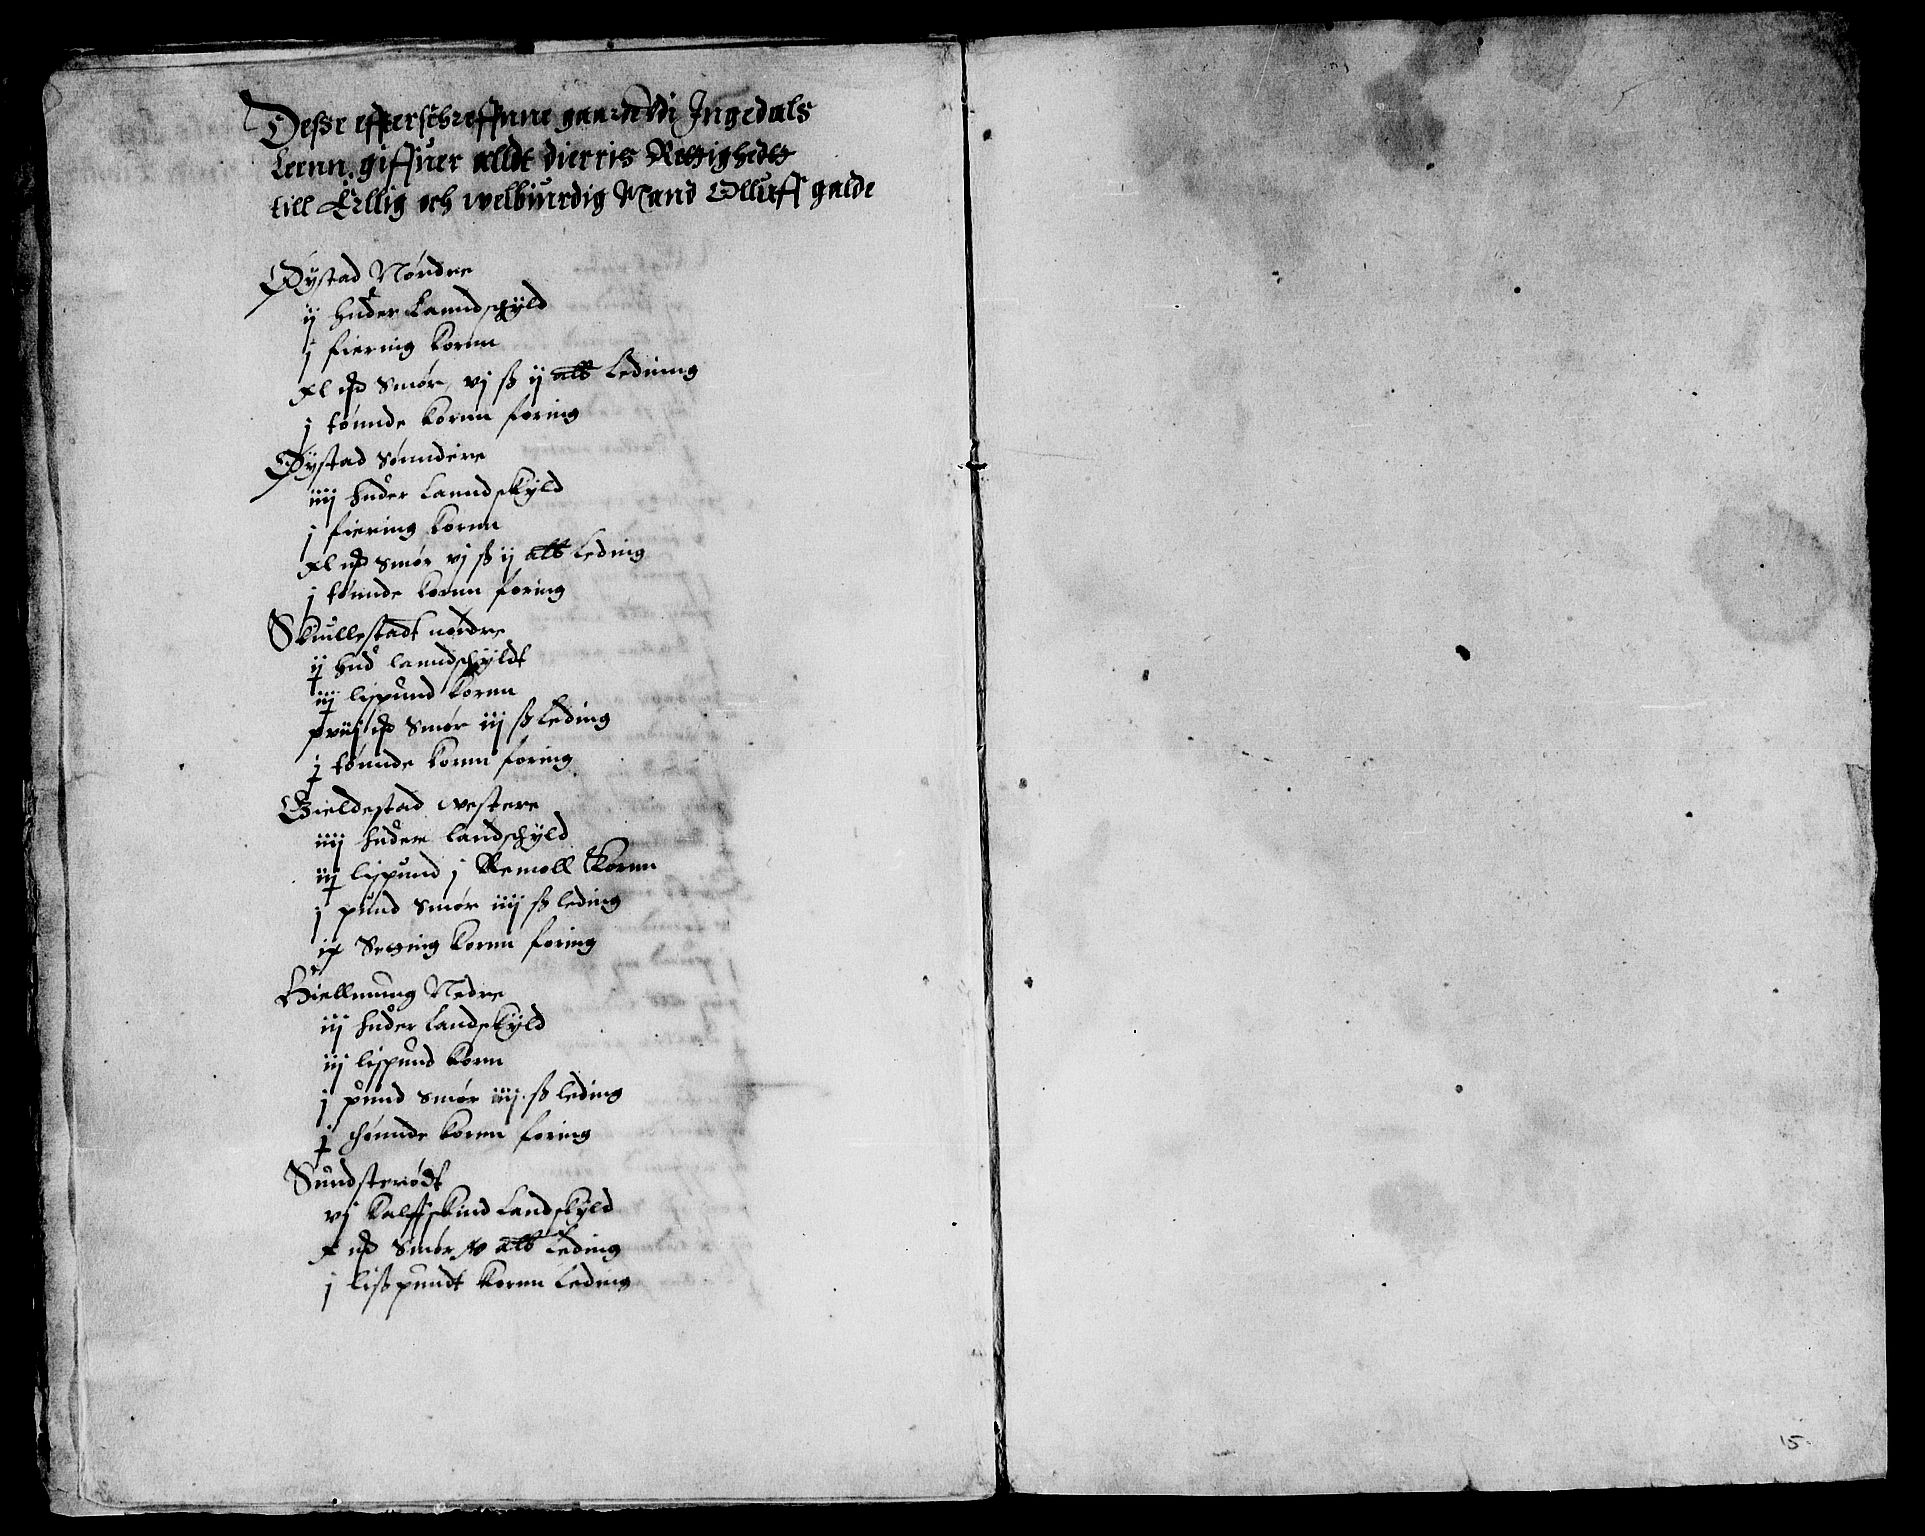 Desse effterschreffnne gaarde vdi Ingedals
Leenn. giffuer alldt dierris Rettighedt
till Erllig och welbiurdig Mand Olluff galde
Øÿstad Nordre
ij huder Lanndschÿld
j fiering Kornn
xl ... Smør, vj ß ij alb Leding
j tønnde Kornn foring
Øÿstad Sønndere
iiij huder Lanndskÿld
j fiering Kornn
xl ... Smør vj ß ij alb Leding
j tønnde Kornn foring
Skiullestadt nordre
ij hud lanndschÿldt
iij lispund Kornn
xviij ... Smør iij ß Leding
j tønnde Kornn foring
Gieldestad westere
iiij huder landschÿld
iij lispund j Remoll Kornn
j pund Smør iiij ß leding
ix Setting Kornn foring
Hiellmung Nedre
iij huder Landskÿld
iij lispund Korn
j pund Smør iiij ß leding
j thønnde Kornn foring
Sundsterødt
vj Kalffskind Landskÿld
x ... Smør alb Leding
j lisspundt Kornn Leding
15